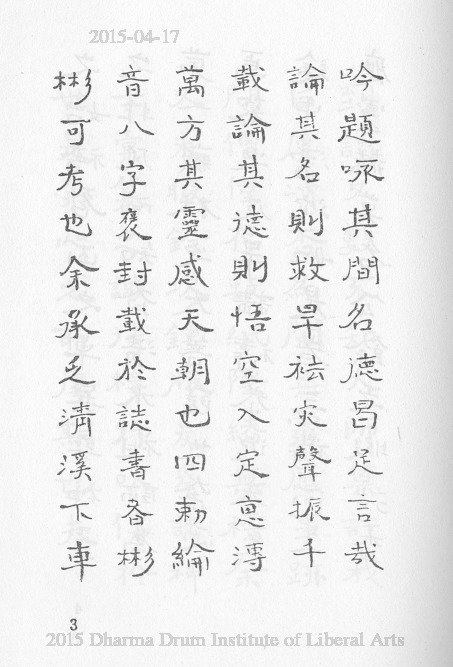 2015-04-17
吟題咏其間名德昌足言哉
論其名則救旱祛灾聲振千
載論其德則悟空入定恵溥
萬方其靈感天朝也四勅綸
音八字褒封載於誌書者彬
彬可考也余承乏清溪下車
3
2015 Dharma Drum Institute of Liberal Arts